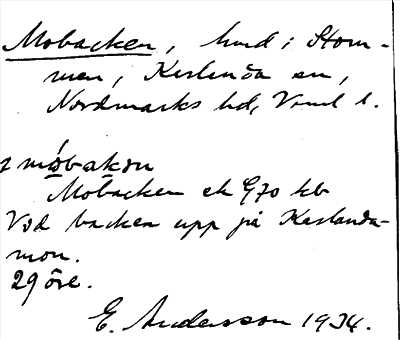 Mobacken, hmd i Stom-
men, Karlanda sn,
Nordmarks hd, Vrml l.
mo̍bakɷn
Mobacken ek G70 kb
Vid backen upp på Karlanda-
mon.
29 öre.
E. Andersson 1934.